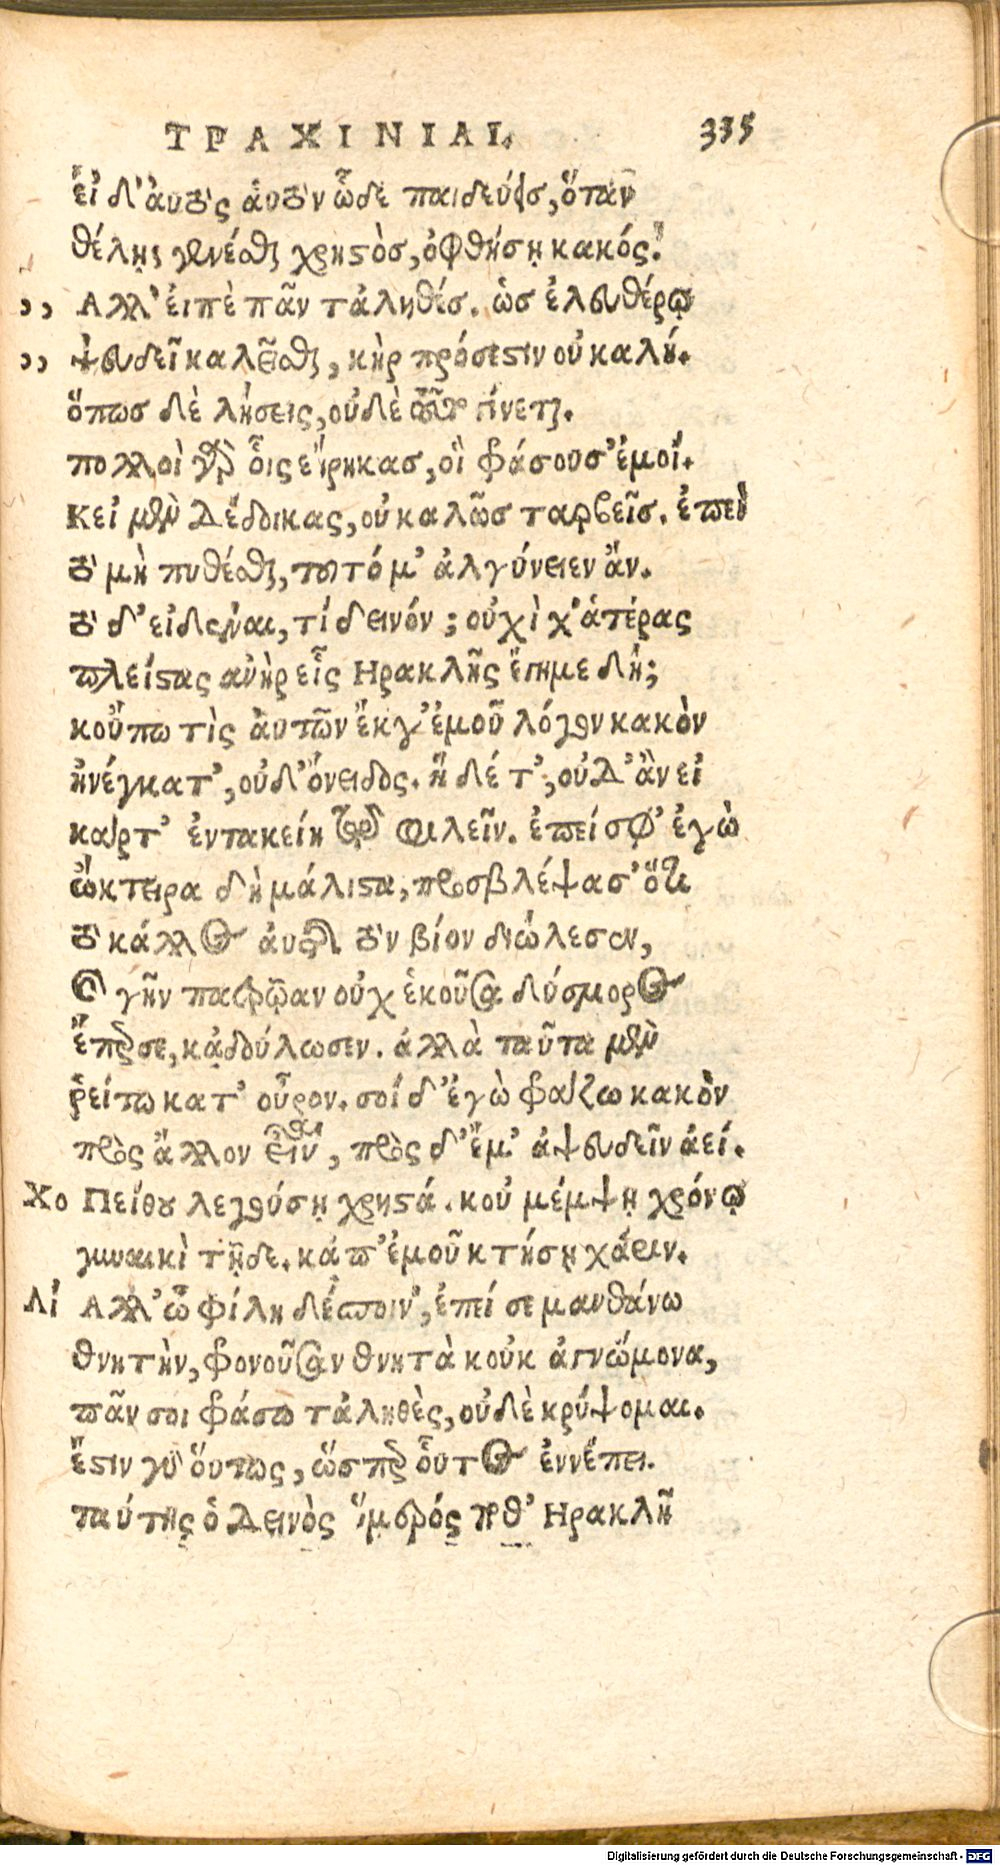 ΤΡΑΧΙΝΙΑΙ. 335
εἰ δ' αὐτὸς αὑτὸν ὧδε παιδεύεις, ὅταν
θέλῃς γενέσθαι χρηστὸς, ὀφθήσῃ κακός.
,, Ἀλλ' εἰπὲ πᾶν τἀληθές. ὡς ἐλευθέρῳ
,, ψευδεῖ καλεῖσθαι, κὴρ πρόσεστιν οὐ καλή.
ὅπως δὲ λήσεις, οὐδὲ τοῦτο γίνεται.
πολλοὶ γὰρ οἷς εἴρηκας, οἳ φάσουσ' ἐμοί.
Κεἰ μὲν δέδοικας, οὐ καλῶς ταρβεῖς. ἐπεὶ
τὸ μὴ πυθέσθαι, τοῦτό μ' ἀλγύνειεν ἄν.
τὸ δ' εἰδέναι, τί δεινόν; οὐχὶ χ' ἁτέρας
πλείστας ἀνὴρ εἷς Ἡρακλῆς ἔγημε δή;
κοὔπω τὶς αὐτῶν ἔκγ' ἐμοῦ λόγον κακὸν
ἠνέγκατ', οὐδ' ὄνειδος. ἥ δέ τ', οὐδ' ἂν εἰ
κάρτ' ἐντακείη τῷ φιλεῖν. ἐπεί σφ' ἐγὼ
ᾤκτειρα δὴ μάλιστα, προσβλέψασ' ὅτι
τὸ κάλλος αὐτῆς τὸν βίον διώλεσεν,
καὶ γῆν πατρῴαν οὐχ ἑκοῦσα δύσμορος
ἔπερσε, κᾀδούλωσεν. ἀλλὰ ταῦτα μὲν
ῥείτω κατ' οὖρον. σοί δ' ἐγὼ φράζω κακὸν
πρὸς ἄλλον εἶναι, πρὸς δ' ἔμ' ἀψευδεῖν ἀεί.
Χο Πείθου λεγούσῃ χρηστά. κοὐ μέμψῃ χρόνῳ
γυναικὶ τῇδε. κἀπ' ἐμοῦ κτήσῃ χάριν.
Λί Ἀλλ' ὦ φίλη δέσποιν', ἐπεί σε μανθάνω
θνητὴν, φρονοῦσαν θνητὰ κοὐκ ἀγνώμονα,
πᾶν σοι φράσω τἀληθὲς, οὐδὲ κρύψομαι.
ἔστιν γὰρ οὕτως, ὥσπερ οὗτος ἐννέπει.
ταύτης ὁ δεινὸς ἵμερός ποθ' Ἡρακλῆ
Digitalisierung gefördert durch die Deutsche Forschungsgemeinschaft - DFG